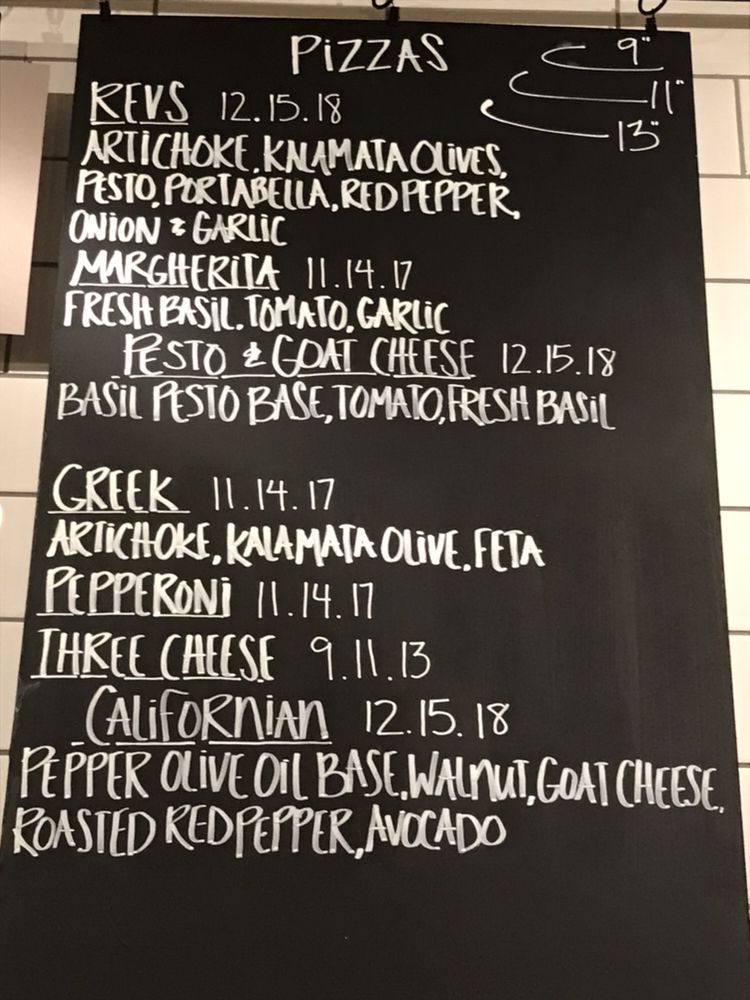 PIZZAS
9"
11"
13"
REVS 12.15.18
ARTICHOKE, KALAMATA OLIVES,
PESTO, PORTABELLA, RED PEPPER,
ONION & GARLIC
MARGHERITA 11.14.17
FRESH BASIL, TOMATO, GARLIC
PESTO & GOAT CHEESE 12.15.18
BASIL PESTO BASE, TOMATO, FRESH BASIL
GREEK 11.14.17
ARTICHOKE, KALAMATA OLIVE, FETA
PEPPERONI 11.14.17
THREE CHEESE 9.11.13
CALIFORNIAN 12.15.18
PEPPER OLIVE OIL BASE, WALNUT, GOAT CHEESE,
ROASTED RED PEPPER, AVOCADO